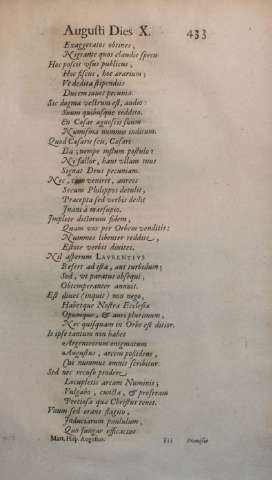 Augusti Dies X. 433
Exaggeratos obtines,
Nigrante quos claudis specu.
Hoc poscit vsus publicus,
Hoc fiscus, hoc ærarium;
Vt dedita stipendiis
Ducem iuuet pecunia.
Sic dogma vestrum est, audio:
Suum quibusque reddito,
En Cæsar agnoscit suum
Numisma nummis inditum.
Quod Cæsaris scis, Cæsari
Da, nempe iustum postulo:
Ni fallor, haud vllam tuus
Signat Deus pecuniam.
Nec, cum veniret, aureos
Secum Philippos detulit,
Præcepta sed verbis dedit
Inani à marsupio.
Implete dictorum fidem,
Quam vos per Orbem venditis:
Nummos libenter reddite,
Estote verbis diuites.
Nil asperum LAVRENTIVS
Refert ad ista, aut turbidum;
Sed, vt paratus obsequi,
Obtemperanter annuit.
Est diues (inquit) non nego,
Habetque Nostra Ecclesia
Opumque, & auri plurimum,
Nec quisquam in Orbe est ditior.
Is ipse tantum non habet
Argenteorum ænigmatum
Augustus, arcem possidens,
Cui nummus omnis scribitur.
Sed nec recuso prodere
Locupletis arcam Numinis;
Vulgabo, cuncta, & proferam
Pretiosa quæ Christus tenet.
Vnum sed orans flagito,
Induciarum paululum,
Quo fungar efficacius
Mart. Hag. Augustus. Iii Promissi